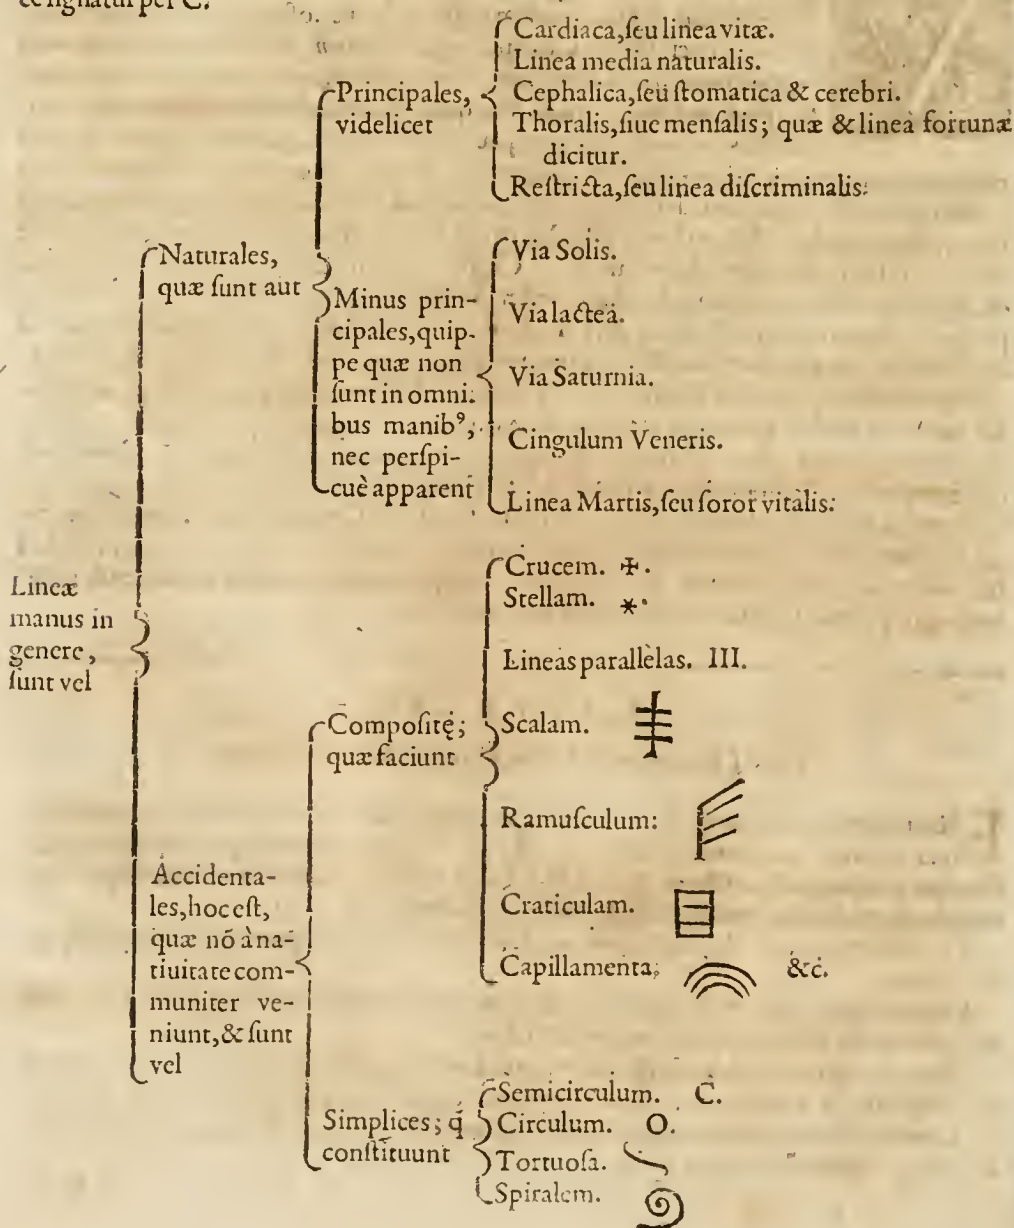 & signatur per C.
Lineæ
manus in
genere,
ſunt vel
Naturales,
quæ ſunt aut
Principales,
videlicet
Cardiaca, ſeu linea vitæ.
Linea media naturalis.
Cephalica, ſeu ſtomatica & cerebri.
Thoralis, ſiue menſalis; quæ & linea fortunæ
dicitur.
Reſtricta, ſeu linea diſcriminalis.
Minus prin-
cipales, quip-
pe quæ non
ſunt in omni-
bus manibꝰ,
nec perſpi-
cuè apparent
Via Solis.
Via lactea.
Via Saturnia.
Cingulum Veneris.
Linea Martis, ſeu ſoror vitalis.
Accidenta-
les, hoc eſt,
quæ nõ à na-
tiuitate com-
muniter ve-
niunt, & ſunt
vel
Compoſitę;
quæ faciunt
Crucem. ✠.
Stellam. *.
Lineas parallelas. III.
Scalam.
Ramuſculum:
Craticulam.
Capillamenta, &c.
Simplices; q́
conſtituunt
Semicirculum. C.
Circulum. O.
Tortuoſa.
Spiralem.